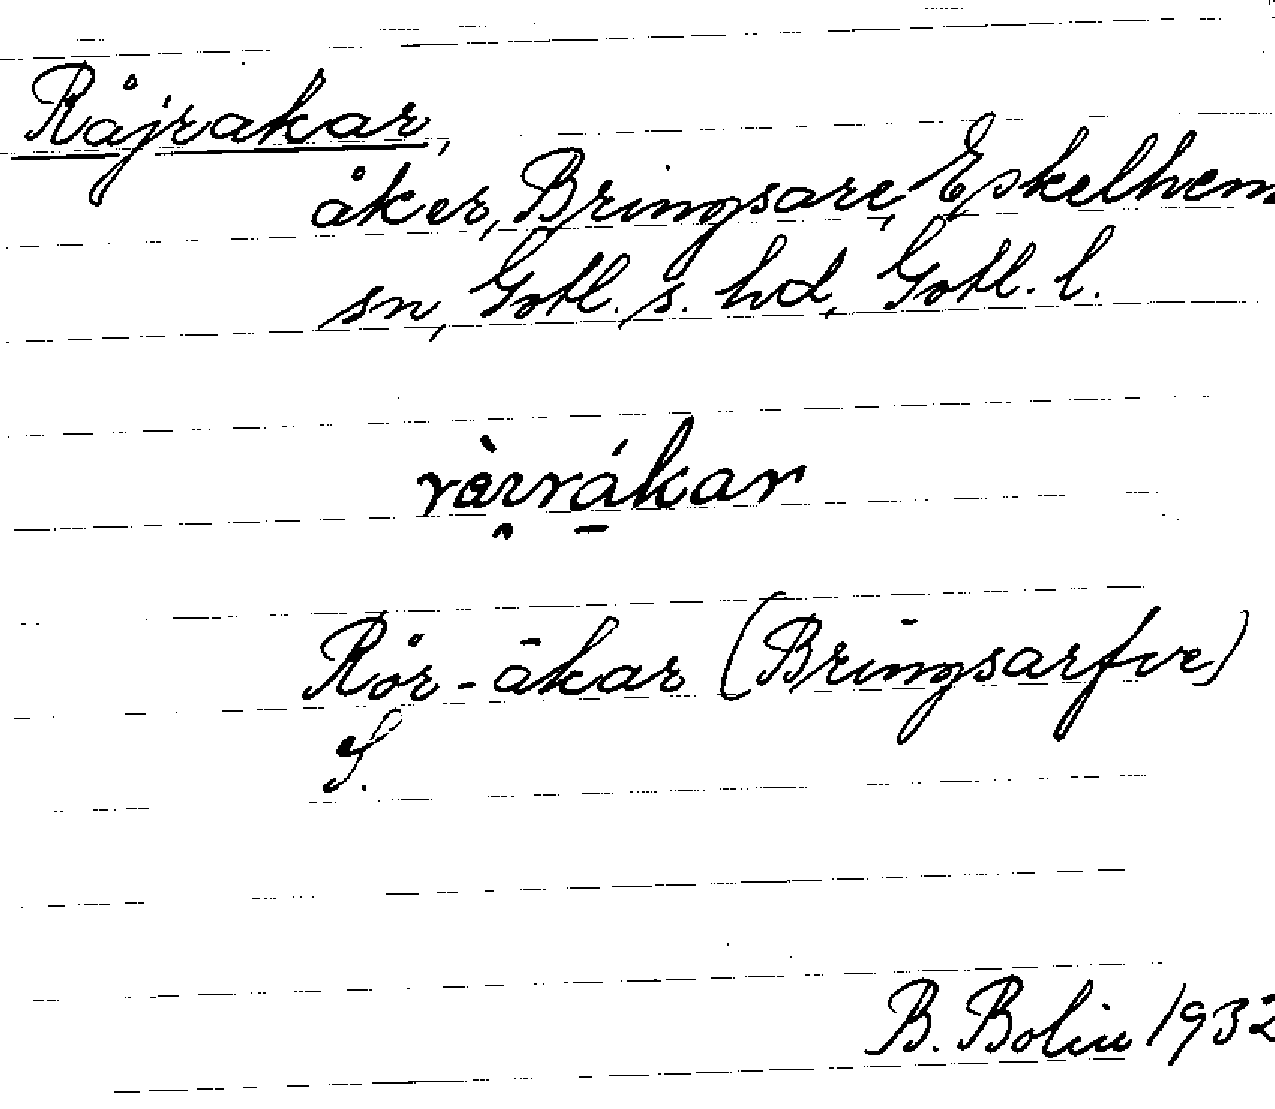 Råjrakar,
åker, Bringsare, Eskelhem
sn, Gotl. s. hd, Gotl. l.
Rör-ākar (Bringsarfve)
S.
B. Bolin 1932